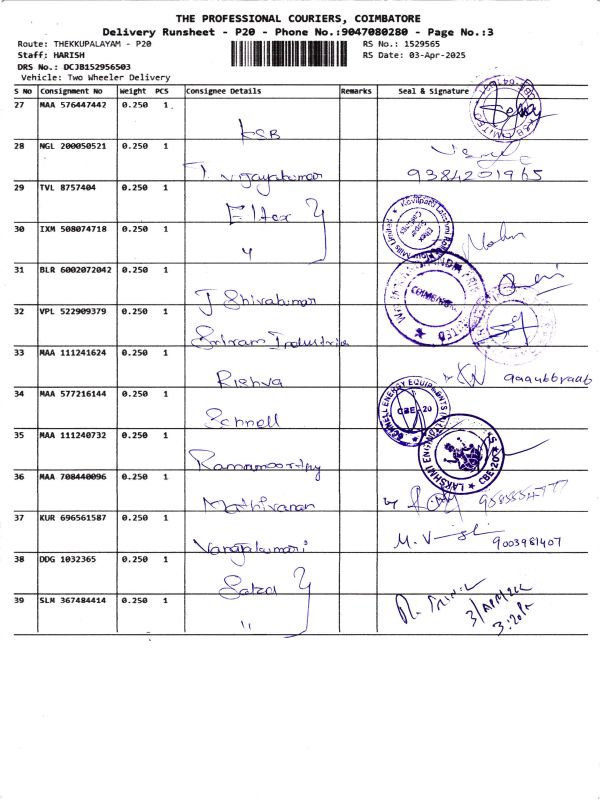 THE PROFESSIONAL COURIERS, COIMBATORE
Delivery Runsheet - P20 - Phone No.:9047080280 - Page No.:3
Route: THEKKUPALAYAM - P20 RS No.: 1529565
Staff: HARISH RS Date: 03-Apr-2025
DRS No.: DCJB152956503
Vehicle: Two Wheeler Delivery
S No Consignment No Weight PCS Consignee Details Remarks Seal & Signature
27 MAA 576447442 0.250 1
KSB
28 NGL 200050521 0.250 1
T. Vijayakumar 9384201965
29 TVL 8757404 0.250 1
Eltex
30 IXM 508074718 0.250 1
"
31 BLR 6002072042 0.250 1
J Shivakumar
32 VPL 522909379 0.250 1
Sriram Industries
33 MAA 111241624 0.250 1
Rishva
34 MAA 577216144 0.250 1
Schnell
SCHNELL ENERGY EQUIPMENTS (P) LTD
CBE-20
35 MAA 111240732 0.250 1
Ramamoorthy
LAKSHMI ENGINEERING
CBE-20
36 MAA 708440096 0.250 1
Mathivanan by
37 KUR 696561587 0.250 1
Vanajakumari 9003981407
38 DDG 1032365 0.250 1
39 SLM 367484414 0.250 1
"
3:20Pm